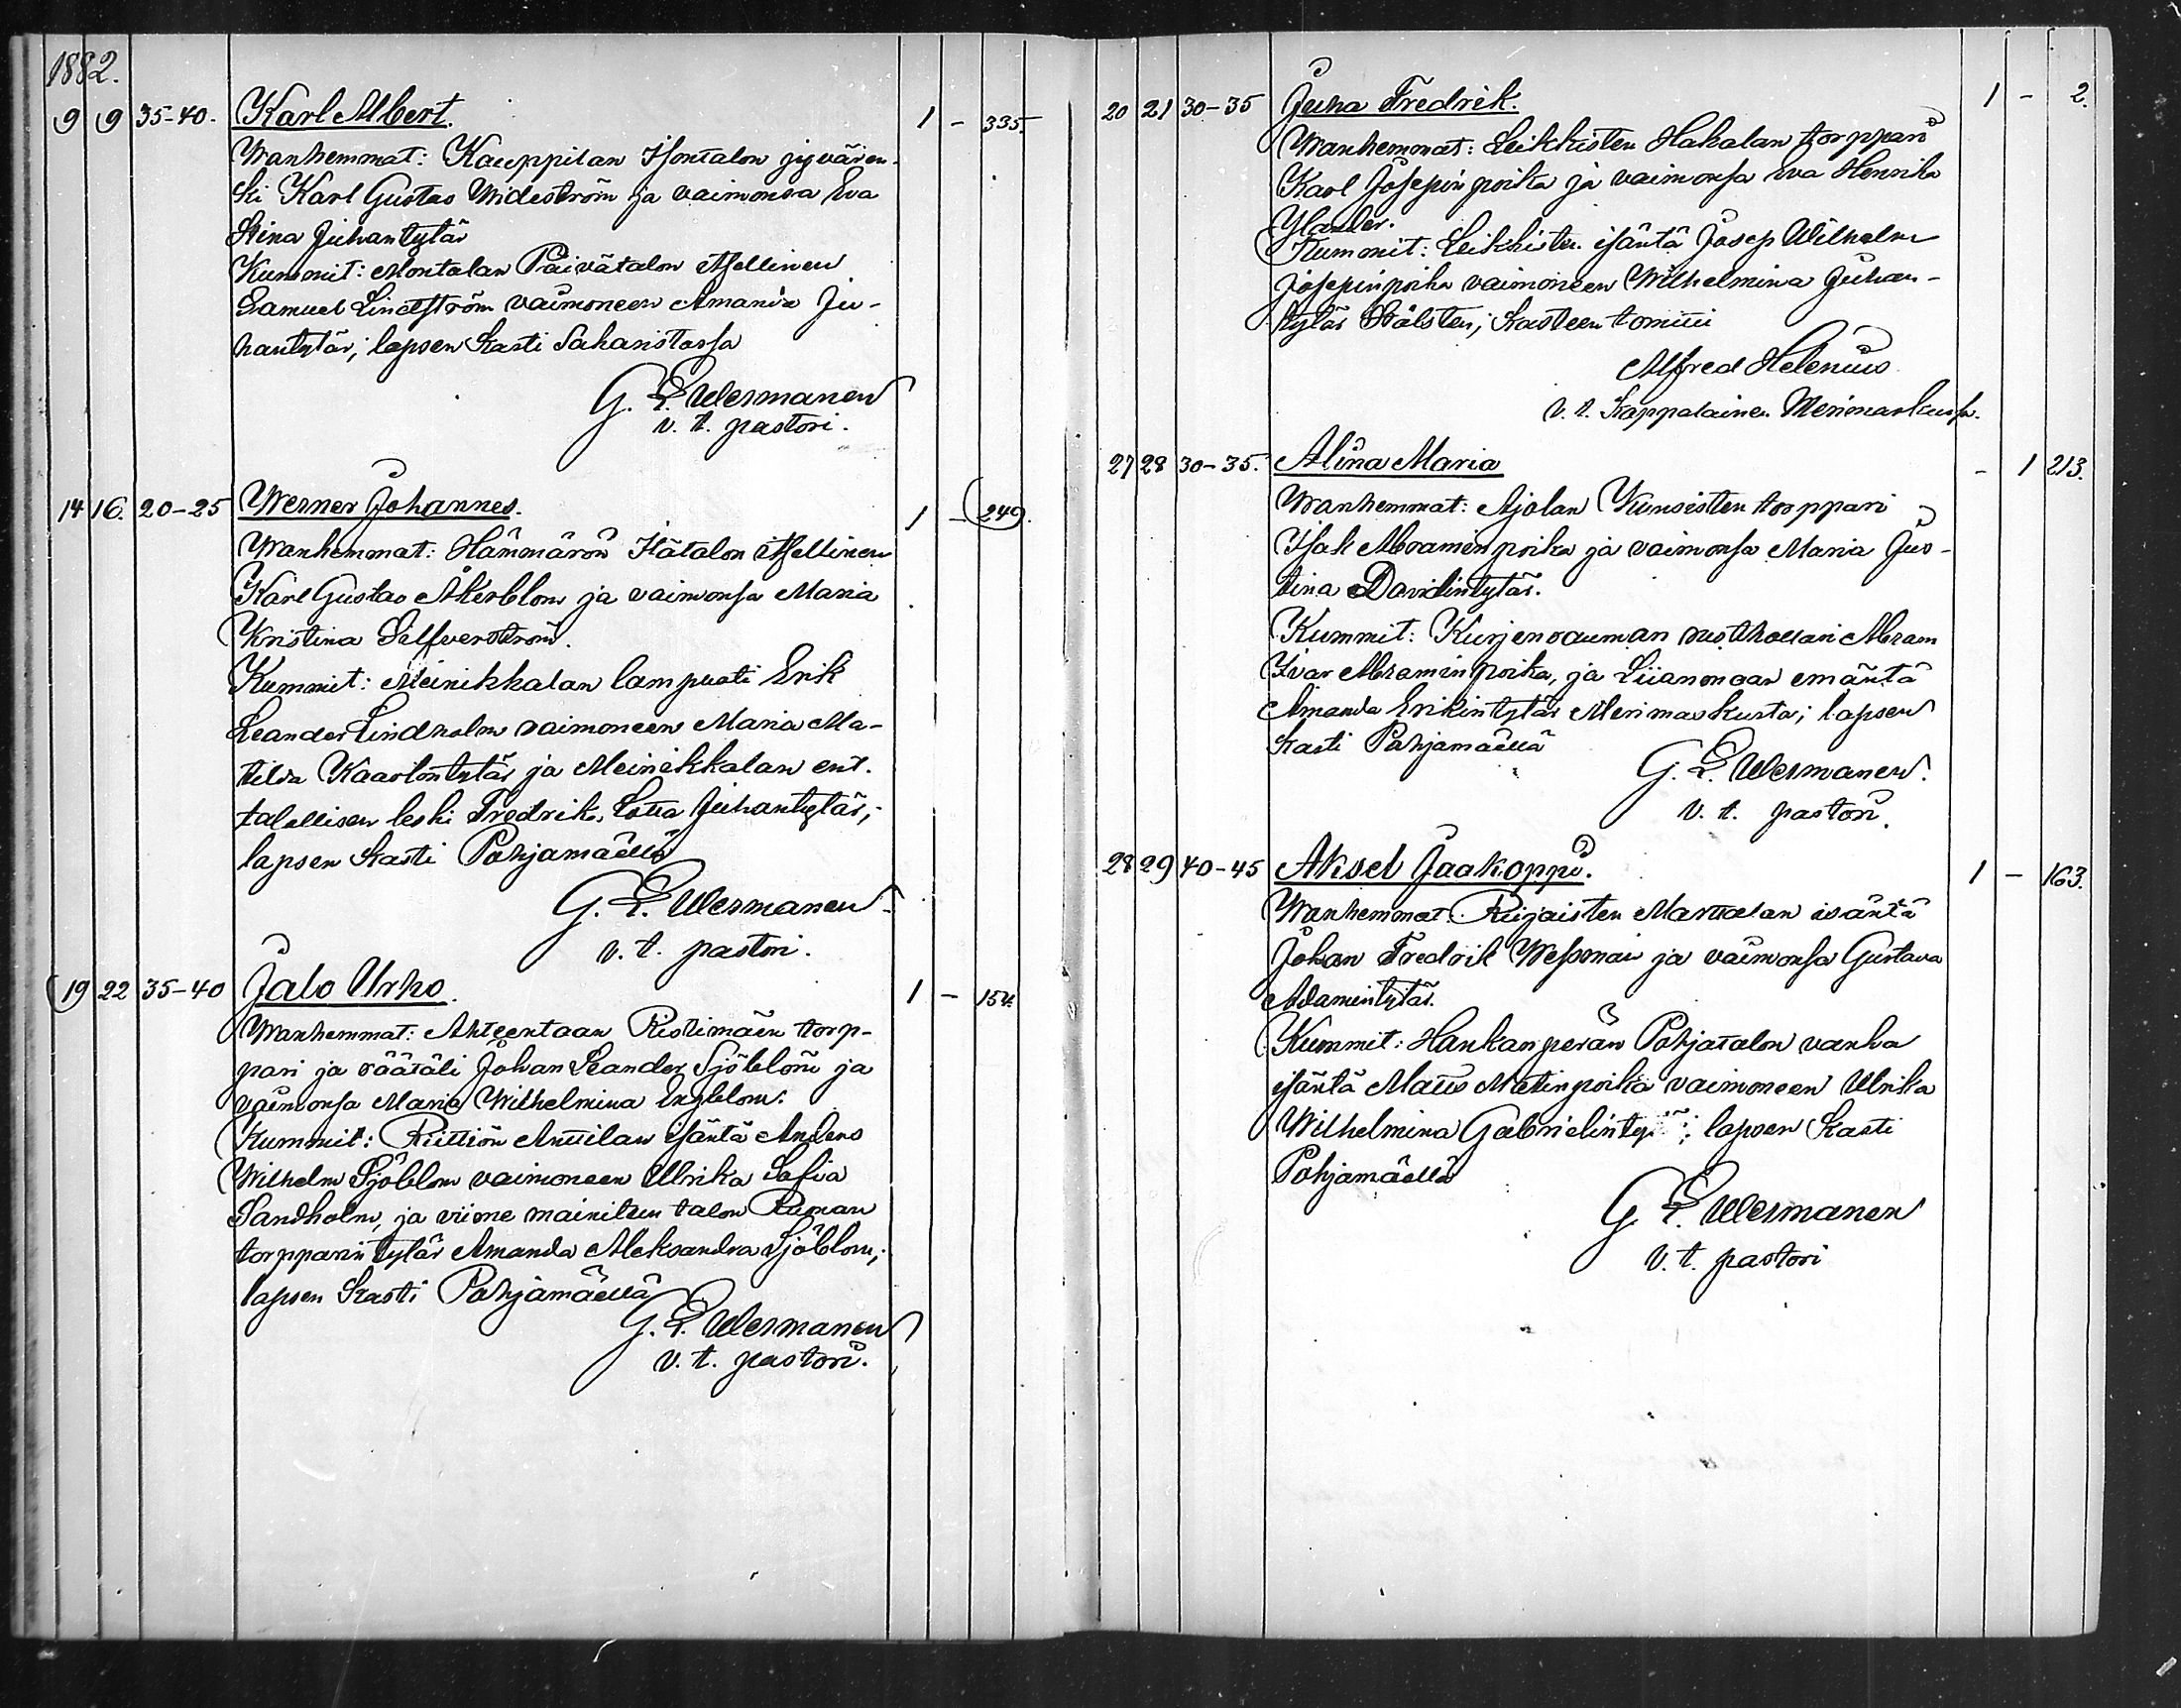 1882.
9 9 35-40. Karl Albert. 1 - 335.
Wanhemmat: Kauppilan Isontalon jyvären-
ki Karl Gustav Wideström ja vaimonsa Eva
Stina Juhantytär
Kummit: Montalan Päivätalon itsellinen
Samuel Lindström vaimoneen Amanda Ju-
hantytär; lapsen kasti Saharistossa
G. E. Wermanen
v. t. pastori.
14 16. 20-25 Werner Johannes. 1 - 249.
Wanhemmat: Hämmärön Itätalon itsellinen
Karl Gustav Åkerblom ja vaimonsa Maria
Kristina Silfverström.
Kummit: Meinikkalan lampuoti Erik
Leander Lindholm vaimoneen Maria Ma-
tilda Kaarlontytär ja Meinikkalan ent.
talollisen leski Fredrika Lotta Juhantytär;
lapsen kasti Pohjamäellä
G. E. Wermanen
v. t. pastori.
19 22 35-40 Jalo Urho. 1 - 154.
Wanhemmat: Ahteentaan Ristimäen torp-
pari ja räätäli Johan Leander Sjöblom ja
vaimonsa Maria Wilhelmina Engblom.
Kummit: Riittiön Anttilan isäntä Anders
Wilhelm Sjöblom vaimoneen Ulrika Sofia
Sandholm, ja viime mainitun talon Rauman
torpparin tytär Amanda Aleksandra Sjöblom;
lapsen kasti Pohjamäellä
G. E. Wermanen
v. t. pastori.
20 21 30-35 Juha Fredrik. 1 - 2.
Wanhemmat: Leikkisten Hakalan torppari
Karl Josepin poika ja vaimonsa Eva Henrika
Ylander.
Kummit: Leikkisten isäntä Josep Wilhelm
Josepinpoika vaimoneen Wilhelmina Juhan-
tytär Stålsten; kasteen toimi
Alfred Helenius
v. t. Kappalainen Merimaskussa.
27 28 30-35. Alina Maria - 1 213.
Wanhemmat: Ajolan Kunsisten torppari
Isak Abramin poika ja vaimonsa Maria Jus-
tina Davidintytär.
Kummit: Kurjenrauman rusthollari Abram
Ivar Abraminpoika, ja Liianmaan emäntä
Amanda Erikintytär Merimaskusta; lapsen
kasti Pohjamäellä
G. E. Wermanen.
v. t. pastori.
28 29 40-45 Aksel Jaakoppi. 1 - 163.
Wanhemmat: Riijaisten Marttalan isäntä
Johan Fredrik Wessman ja vaimonsa Gustava
Adamintytär.
Kummit: Hankanperän Pohjatalon vanha
isäntä Matts Matinpoika vaimoneen Ulrika
Wilhelmina Gabrielinty; lapsen kasti
Pohjamäellä
G. E. Wermanen
v. t. pastori